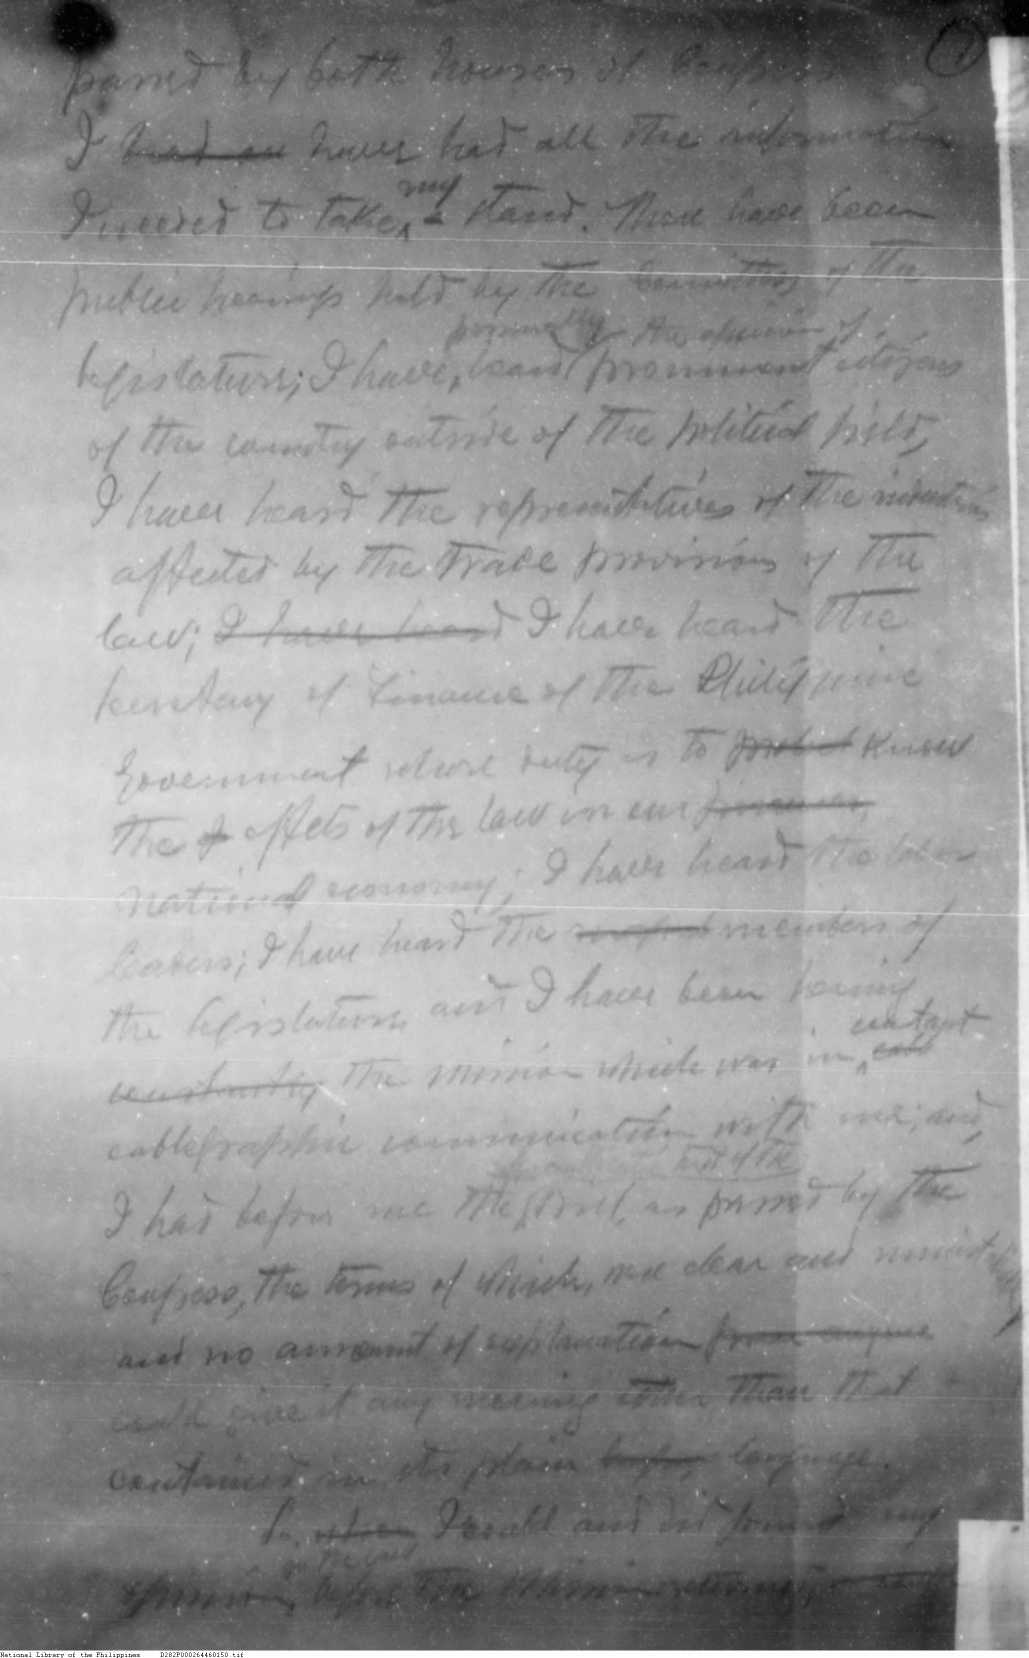 passed by both houses of Congress
I had all have had all the information
I needed to take my a stand. There have been
public hearings held by the Committees of the
personally the opinion of
legislature; I have, heard prominent citizens
of the country outside of the political field,
I have heard the representatives of the industries
affected by the trade provisions of the
law; I have heard I have heard the
Secretary of Finance of the Philippine
Government whose duty is to know
the effects of the law in our finances,
national economy; I have heard the labor
leaders; I have heard the members of
the legislature and I have been hearing
constantly the Mission which was in constant
cablegraphic communication with me; and,
text of the
I had before me the bill, as passed by the
Congress, the terms of which, are clear and
and no amount of explanation from anyone
could give it any meaning other than that
contained in its plain language.
So, when I could and did formed my
opinion, before the Mission returned,
National Library of the Philippines D282P000264460150.tif